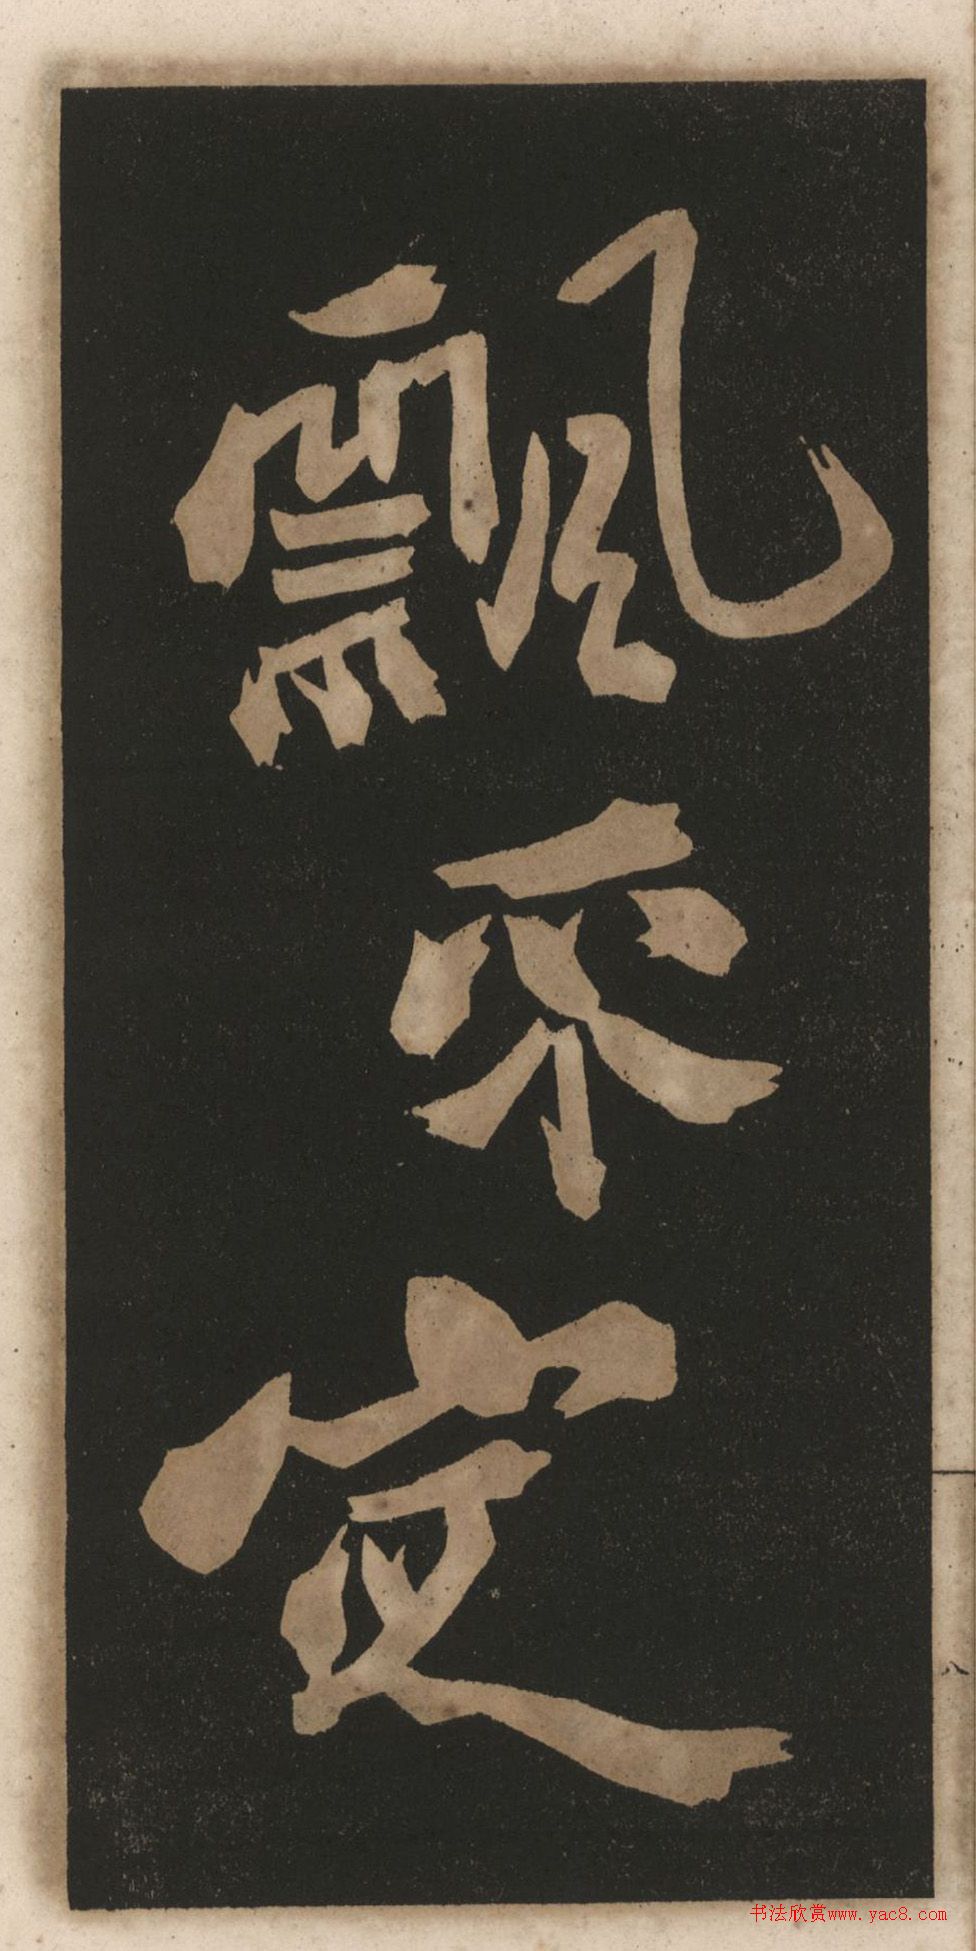 飄來定
书法欣赏www.yac8.com